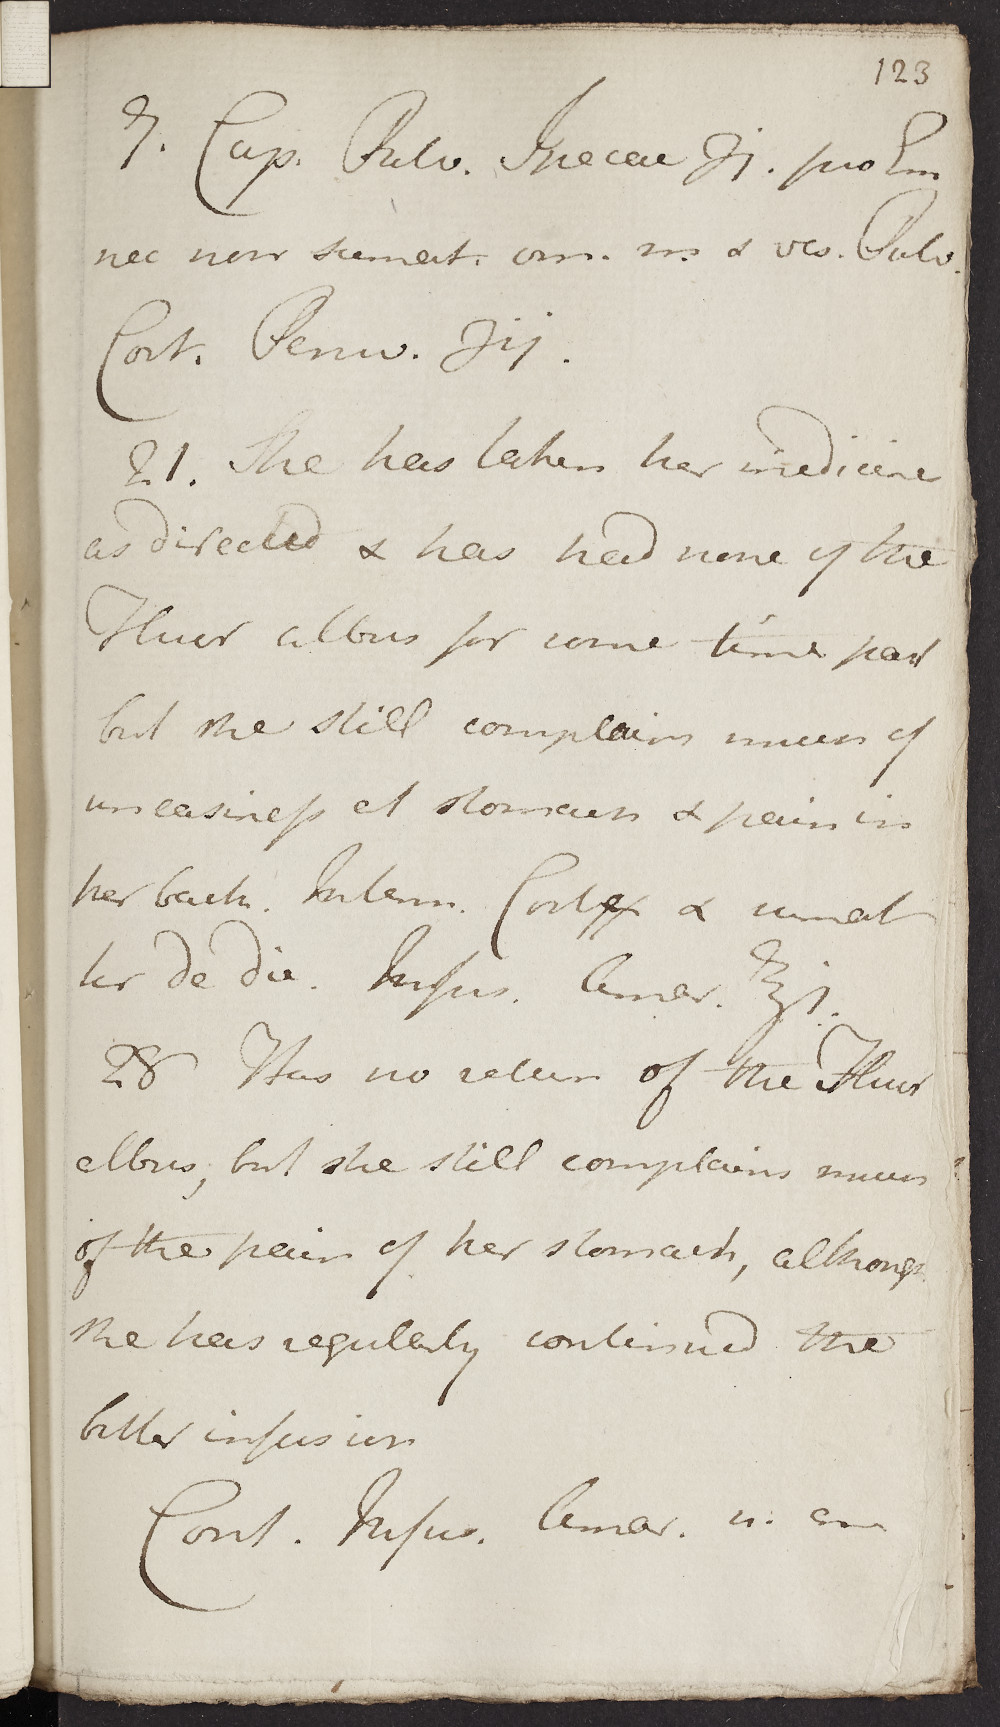 123
7. Cap. Pulv. Ipecac ʒj. pro Em
nec non sumat. om. m. & ves. Pulv.
Cort. Peruv. ʒij.
21. She has taken her medicine
as directed & has had none of the
Fluor albus for some time past
but she still complains much of
uneasiness at stomach & pain in
her back. Interm. Cortex & sumat
ter de die. Infus. Amar. ℥j.
28 Has no return of the Fluor
albus, but she still complains much
of the pain of her stomach, although
she has regularly continued the
bitter infusion
Cont. Infus. Amar.